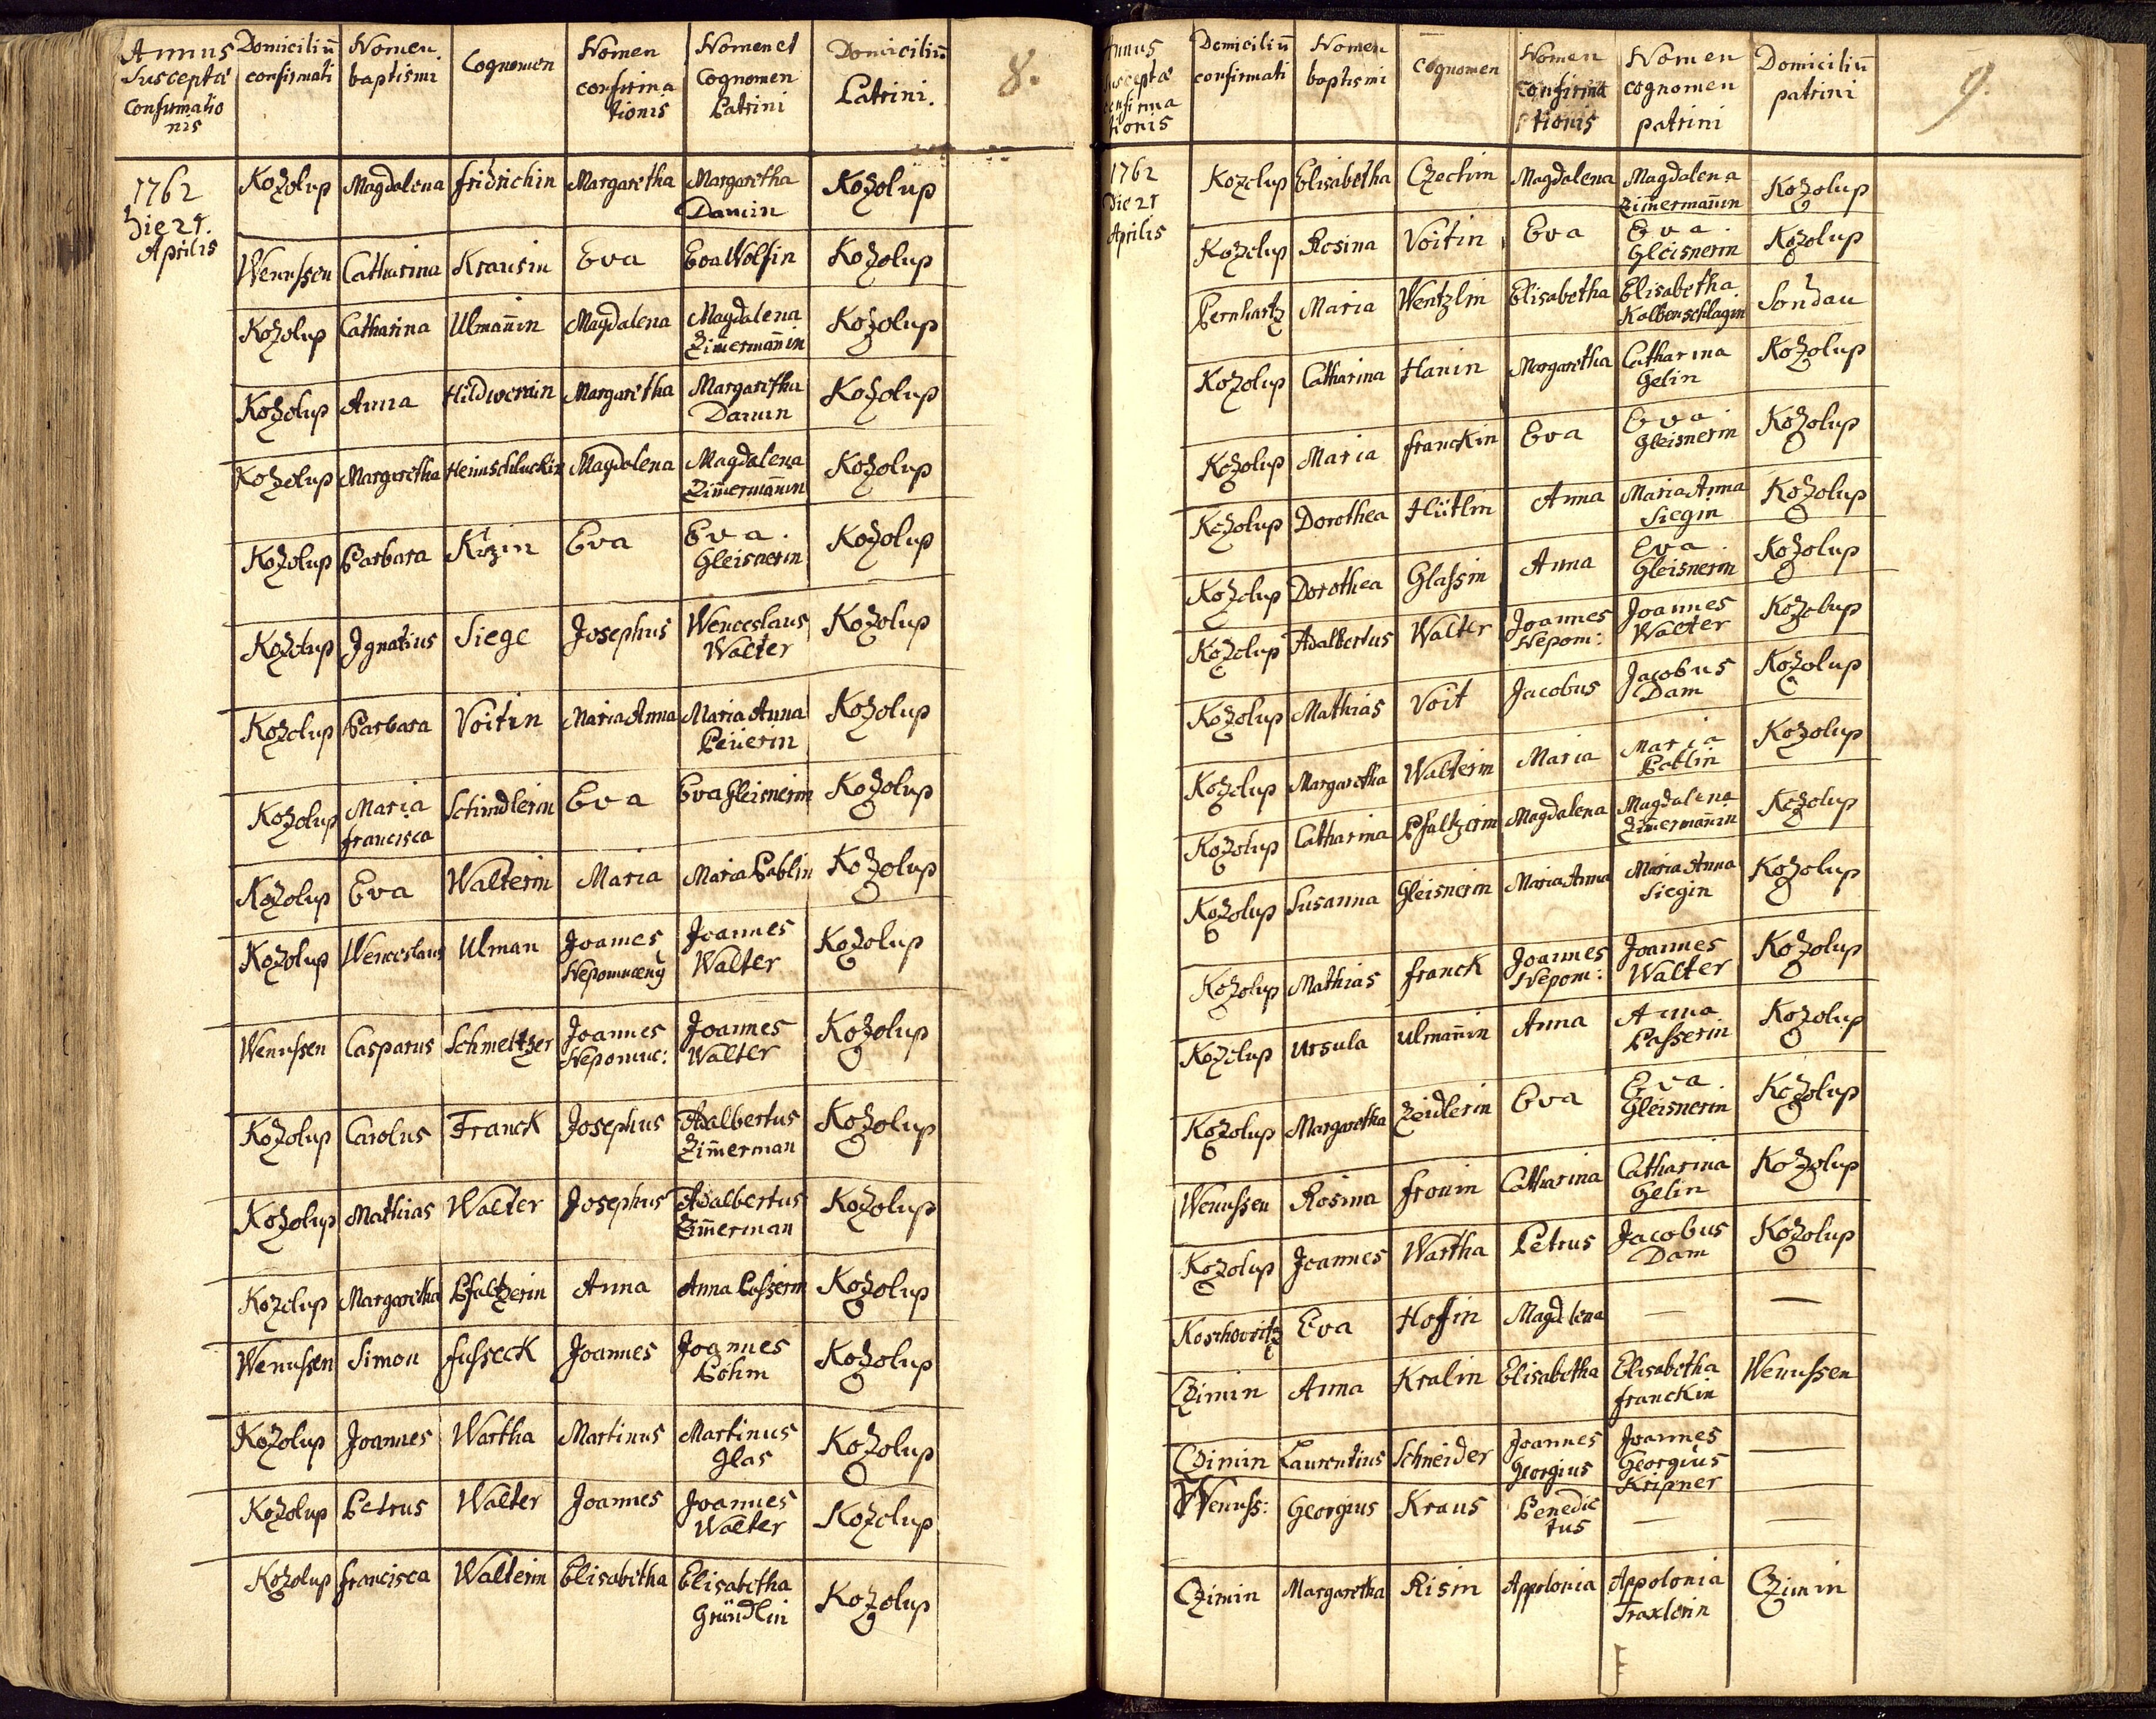 Annus Susceptæ Confirmationis | Domiciliu̅ confirmati | Nomen baptismi | Cognomen | Nomen confirmationis | Nomen et Cognomen Patrini | Domiciliu̅ Patrini. | 8.
1762 Die 21. Aprilis
Kozolup Magdalena Fridrichin Margaretha Margaretha Damin Kozolup
Wenussen Catharina Krausin Eva Eva Wolfin Kozolup
Kozolup Catharina Ulman̄in Magdalena Magdalena Zim̄erman̄in Kozolup
Kozolup Anna Margaretha Margaretha Damin Kozolup
Kozolup Margaretha Heimschluckin Magdalena Magdalena Zim̄erman̄in Kozolup
Kozolup Barbara Eva Eva Gleisnerin Kozolup
Kozolup Ignatius Siege Josephus Wenceslaus Walter Kozolup
Kozolup Barbara Voitin Maria Anna Maria Anna Beüerin Kozolup
Kozolup Maria Francisca Schindlerin Eva Eva Gleisnerin Kozolup
Kozolup Eva Walterin Maria Maria Bablin Kozolup
Kozolup Wenceslaus Ulman Joannes Nepomuceny Joannes Walter Kozolup
Wenussen Casparus Schmeltzer Joannes Nepomuc: Joannes Walter Kozolup
Kozolup Carolus Franck Josephus Adalbertus Zim̄erman Kozolup
Kozolup Mathias Walter Josephus Adalbertus Zim̄erman Kozolup
Kozolup Margaretha Pfaltzerin Anna Anna Passerin Kozolup
Wenussen Simon Fusseck Joannes Joannes Böhm Kozolup
Kozolup Joannes Wartha Martinus Martinus Glas Kozolup
Kozolup Petrus Walter Joannes Joannes Walter Kozolup
Kozolup Francisca Walterin Elisabetha Elisabetha Gründlin Kozolup
Annus Susceptæ Confirmationis | Domiciliu̅ confirmati | Nomen baptismi | Cognomen | Nomen confirmationis | Nomen cognomen patrini | Domiciliu̅ patrini | 9.
1762 Die 21 Aprilis
Kozolup Elisabetha Magdalena Magdalena Zim̄erman̄in Kozolup
Kozolup Rosina Voitin Eva Eva Gleisnerin Kozolup
Bernhartz Maria Wentzlin Elisabetha Elisabetha Kolbenschlagin
Kozolup Catharina Hanin Margaretha Catharina Gelin Kozolup
Kozolup Maria Franckin Eva Eva Gleisnerin Kozolup
Kozolup Dorothea Hütlin Anna Maria Anna Siegin Kozolup
Kozolup Dorothea Glassin Anna Eva Gleisnerin Kozolup
Kozolup Adalbertus Walter Joannes Nepom: Joannes Walter Kozolup
Kozolup Mathias Voit Jacobus Jacobus Dam Kozolup
Kozolup Margaretha Walterin Maria Maria Bablin Kozolup
Kozolup Catharina Pfaltzerin Magdalena Magdalena Zim̄erman̄in Kozolup
Kozolup Susanna Gleisnerin Maria Anna Maria Anna Siegin Kozolup
Kozolup Mathias Franck Joannes Nepom: Joannes Walter Kozolup
Kozolup Ursula Ulman̄in Anna Anna Passerin Kozolup
Kozolup Margaretha Zeidlerin Eva Eva Gleisnerin Kozolup
Wenussen Rosina Catharina Catharina Gelin Kozolup
Kozolup Joannes Wartha Petrus Jacobus Dam Kozolup
Eva Magdlena — —
Czimin Anna Kralin Elisabetha Elisabetha Franckin Wenussen
Czimin Laurentius Schneider Joannes Georgius Joannes Georgius Kripner —
Wenuss: Georgius Kraus Benedictus — —
Czimin Margaretha Risin Appolonia Appolonia Traxlerin Czimin